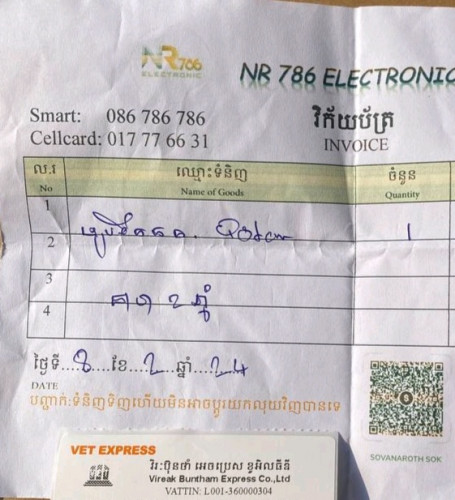 NR786
ELECTRONIC
NR 786 ELECTRONIC
Smart: 086 786 786
Cellcard: 017 77 66 31
វិក័យប័ត្រ
INVOICE
ល.រ
No
ឈ្មោះទំនិញ
Name of Goods
ចំនួន
Quantity
1
1
2
3
4
ថ្ងៃទី 8 ខែ 2 ឆ្នាំ 24
DATE
បញ្ជាក់:ទំនិញទិញហើយមិនអាចប្តូរយកលុយវិញបានទេ
SOVANAROTH SOK
VET EXPRESS
វីរៈប៊ុនថាំ អេចប្រេស ខូអិលធីឌី
Vireak Buntham Express Co.,Ltd
VATTIN: L001-360000304